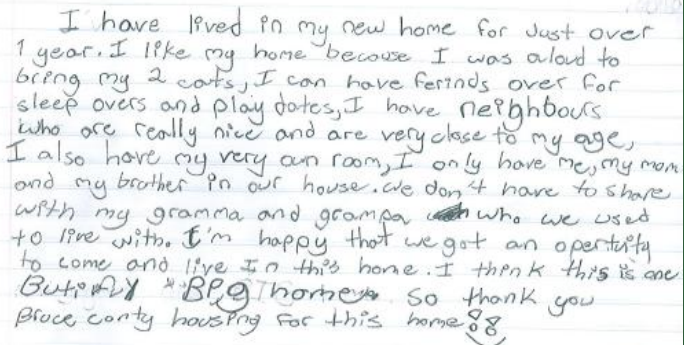 I have lived in my new home for Just over
1 year. I like my home because I was aloud to
bring my 2 cats, I can have ferinds over for
sleep overs and play dates, I have neighbours
who are really nice and are very close to my age,
I also have my very own room, I only have me, my mom
and my brother in our house. we don't have to share
with my gramma and grampa who we used
to live with. I'm happy that we got an opertuity
to come and live In this home. I think this is one
Butifly Big home so thank you
Bruce conty housing for this home